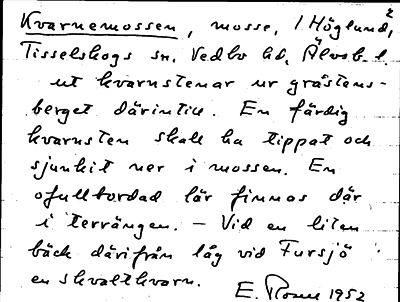 Kvarnemossen, mosse, 1 Höglund,²
Tisselskogs sn. Vedbo hd, Älvsb. l.
ut kvarnstenar ur gråstens-
berget därintill. En färdig
kvarnsten skall ha tippat och
sjunkit ner i mossen. En
ofullbordad lär finnas där
i terrängen. – Vid en liten
bäck därifrån låg vid Fursjö
en skvaltkvarn.
E. 1952